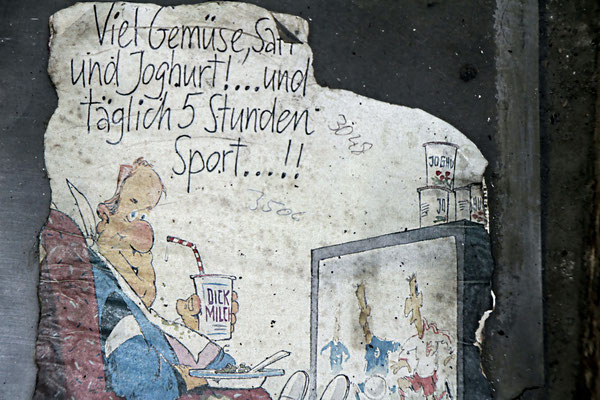 Viel Gemüse, Saft
und Joghurt!....und
täglich 5 Stunden
Sport....!!
3500
JOGHU
JO
DICK
MILCH